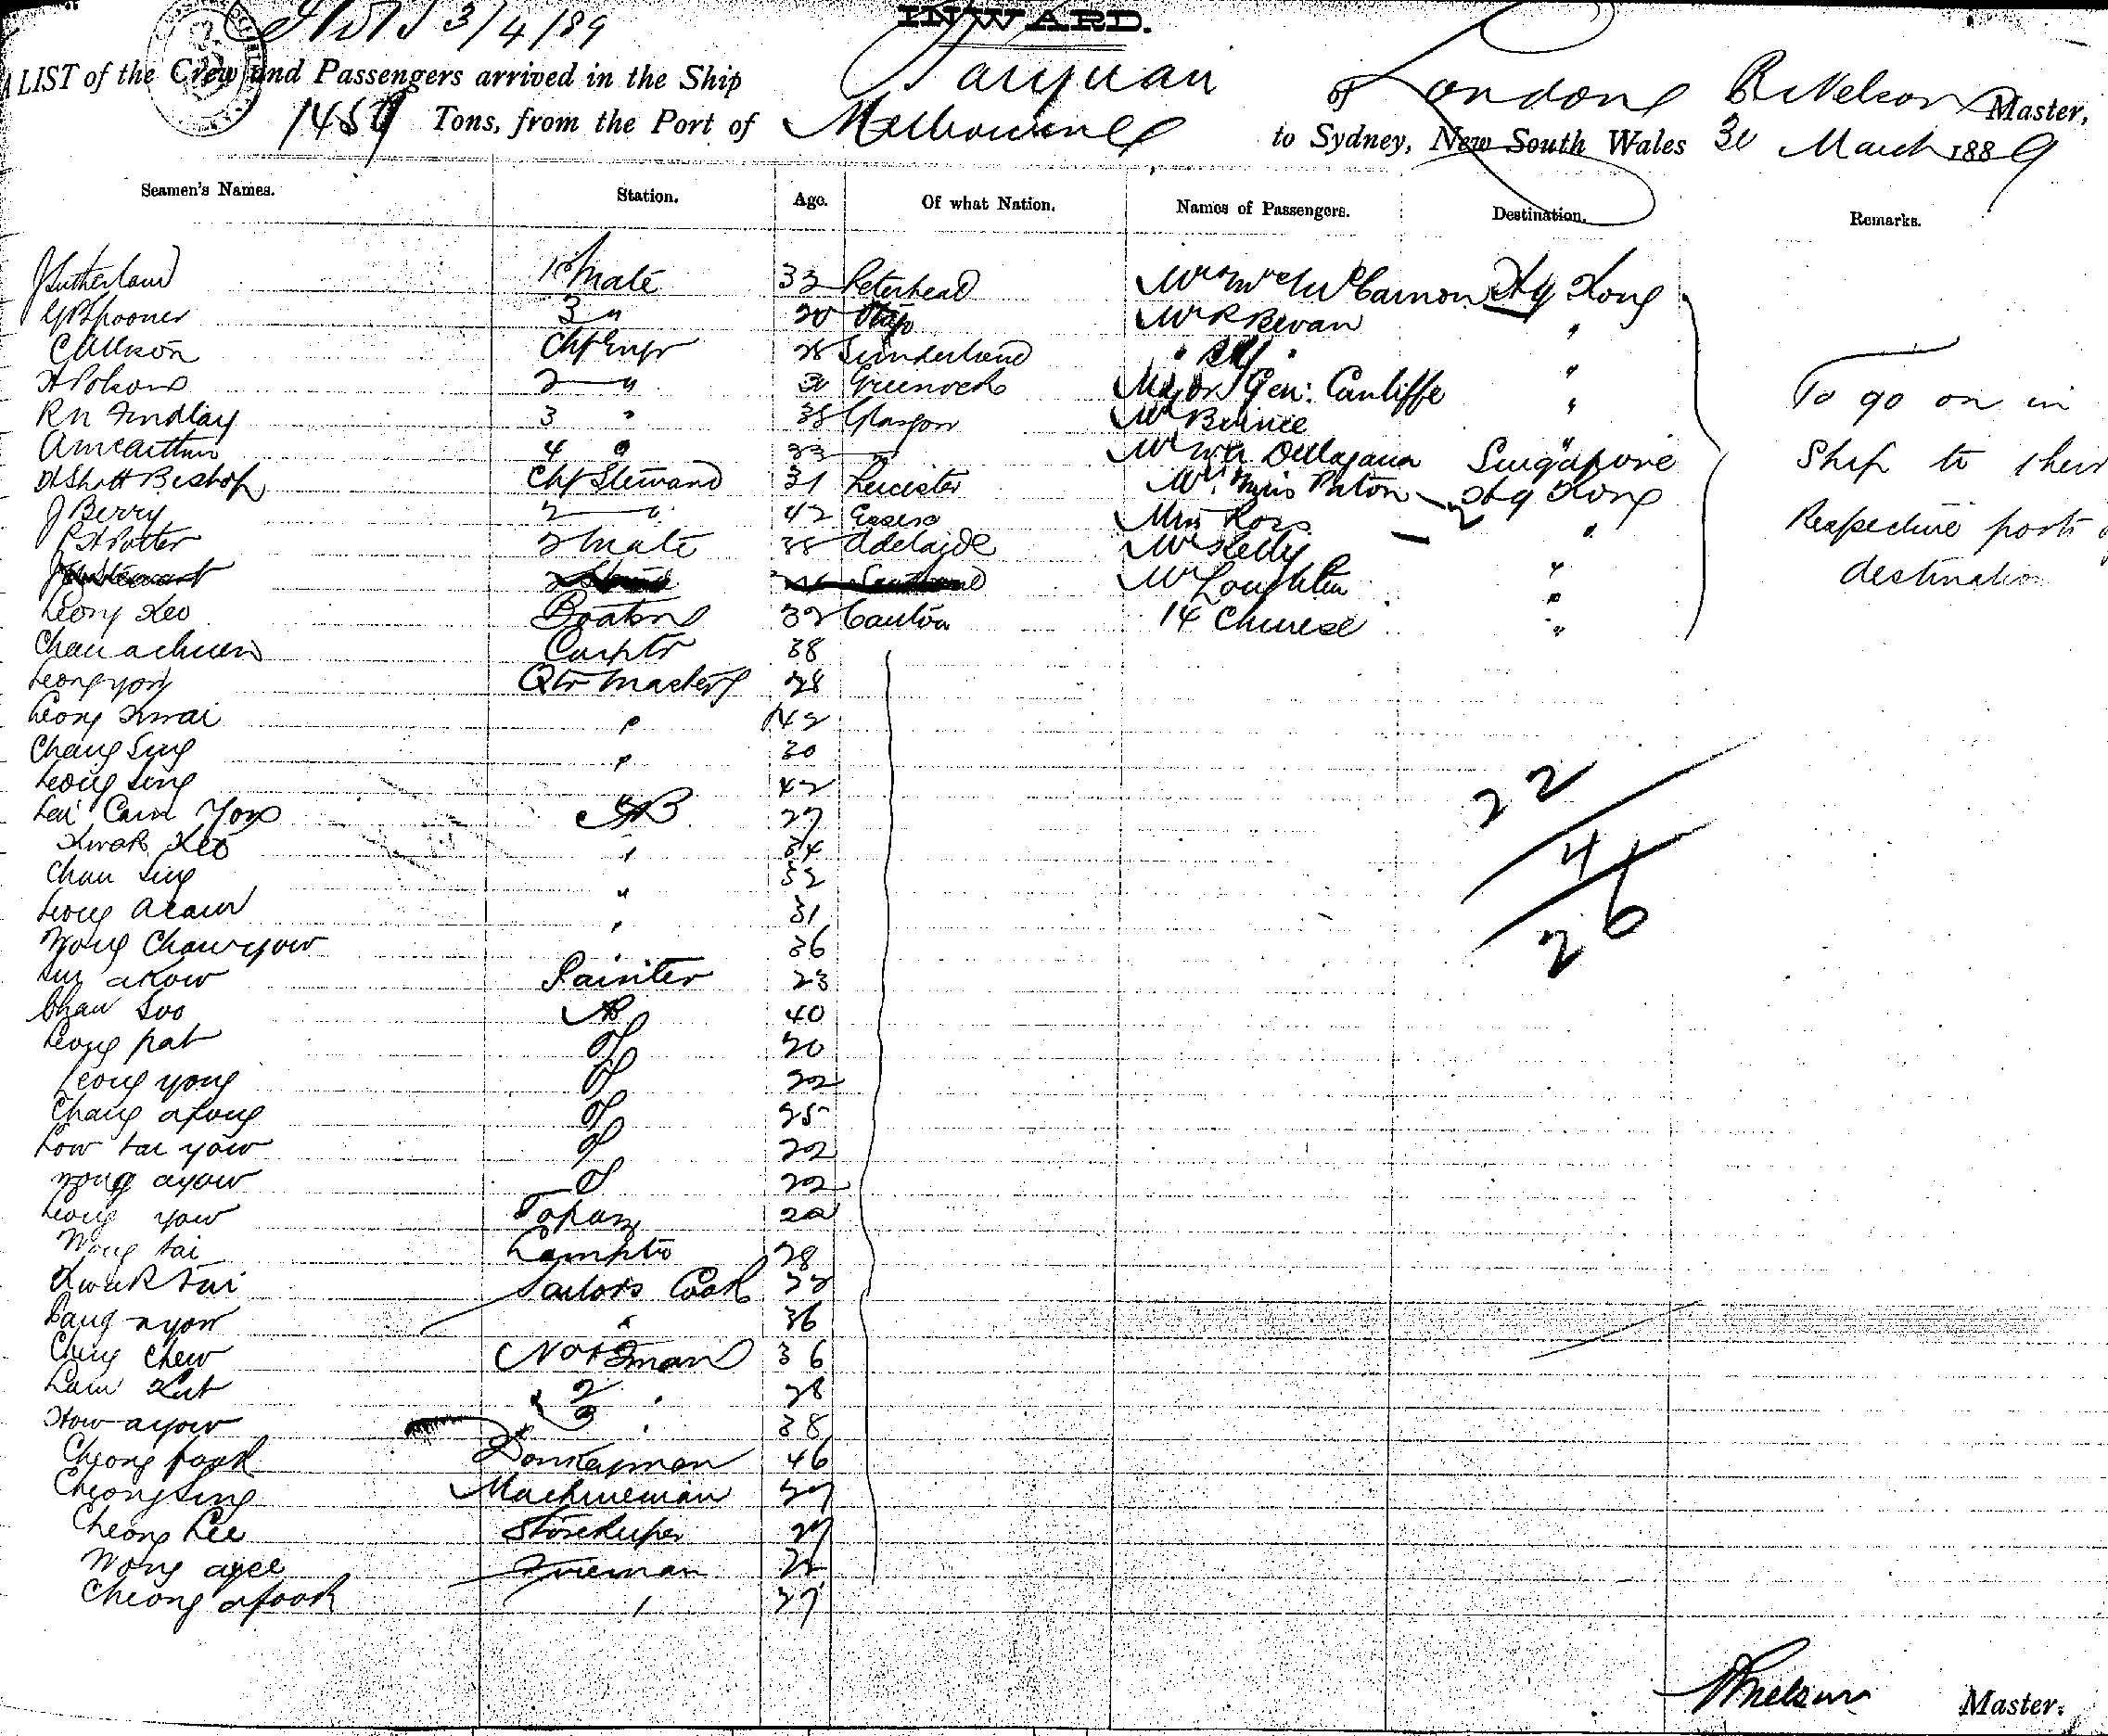 3/4/89
INWARD.
A LIST of the Crew and Passengers arrived in the Ship Taiyuan of London R Nelson Master,
1459 Tons, from the Port of Melbourne to Sydney, New South Wales 30 March 1889
Seamen's Names. Station. Age. Of what Nation. Names of Passengers. Destination. Remarks.
J Sutherland 1st Mate 33 Peterhead Hg Kong
G Spooner 3 " 20 Mr R Bevan "
C Allison Chf Engr 28 Sunderland "
A Polson 2 " 30 Greenock Major Gen: Cunliffe " To go on in
R N Findlay 3 " 38 Glasgow Mr "
A McArthur 4 " 33 Mr Singapore Ship to their
Shatt Bishop Chf Steward 31 Leicester Mr. Miss Paton Hg Kong
J Berry 2 " 42 Mrs Ross " Respective ports of
Potter 2 Mate 38 Adelaide Mr Kelly " destination
Stewart Mr Loughlin "
Leong Keo Boatsn 32 Canton 14 Chinese "
Chan achuen Carptr 38
Leong yong Qtr Masters 28
Leong Kwai " 42
Chang Sing " 30
Leong Sing 42
Lai Cam Yong AB 27
Kwok Keo " 34
Chan Sing " 32
Leong Acaur " 31
Wong Chaw yow 36
akow Painter 23
Chaw Soo AB 40
Leong pat 20
Leong yong 22
Chang afong 25
Low tai yow 22
Wong ayow 22
Leong yow Topaz 22
Wong tai Lamptr 28
Kwok tai Sailors Cook
Bang ayow " 36
Ching Chew No 1 Fireman 36
Lam Kut 2 " 28
How ayow 3 " 38
Cheong fook Donkeyman 46
Cheong Sing Machineman 27
Cheong Lee Storekeeper 27
Wong ayee Fireman
Cheong afook " 27
22
4
26
R Nelson Master.